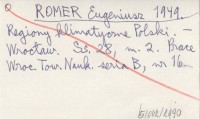 ROMER Eugeniusz 1949.
Regiony klimatyczne Polski. –
Wrocław. Ss. 28, m. 2. Prace
Wroc. Tow. Nauk. seria B, nr 16.